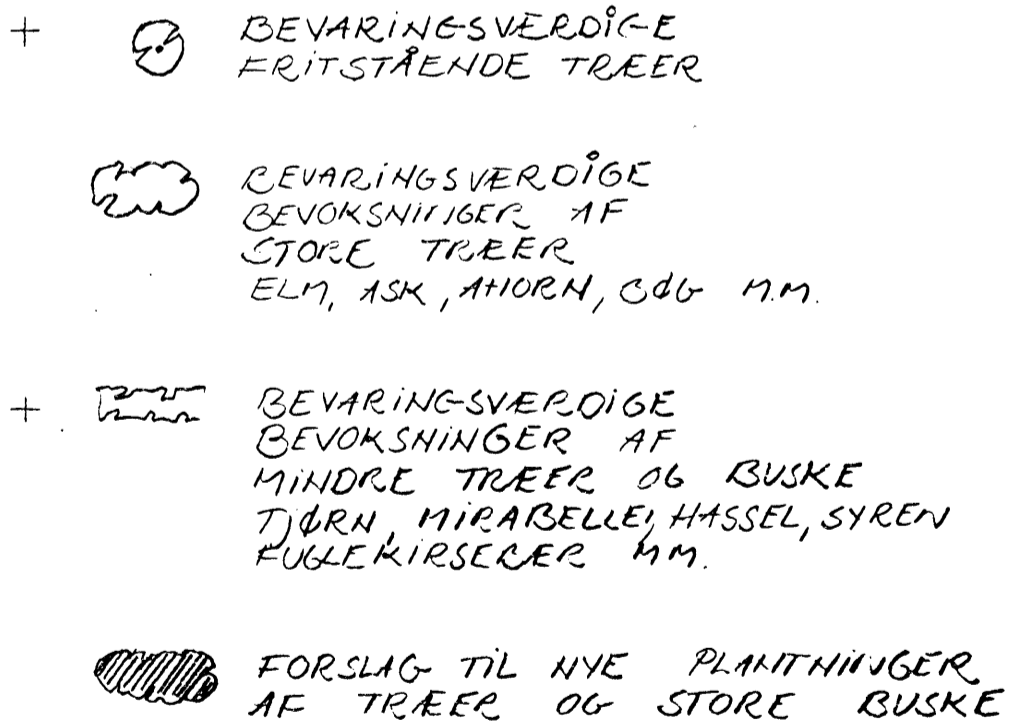 + BEVARINGSVÆRDIGE
FRITSTÅENDE TRÆER
BEVARINGSVÆRDIGE
BEVOKSNINGER AF
STORE TRÆER
ELM, ASK, AHORN, BØG M.M.
+ BEVARINGSVÆRDIGE
BEVOKSNINGER AF
MINDRE TRÆER OG BUSKE
TJØRN, MIRABELLE, HASSEL, SYREN
FUGLEKIRSEBÆR MM.
FORSLAG TIL NYE PLANTNINGER
AF TRÆER OG STORE BUSKE